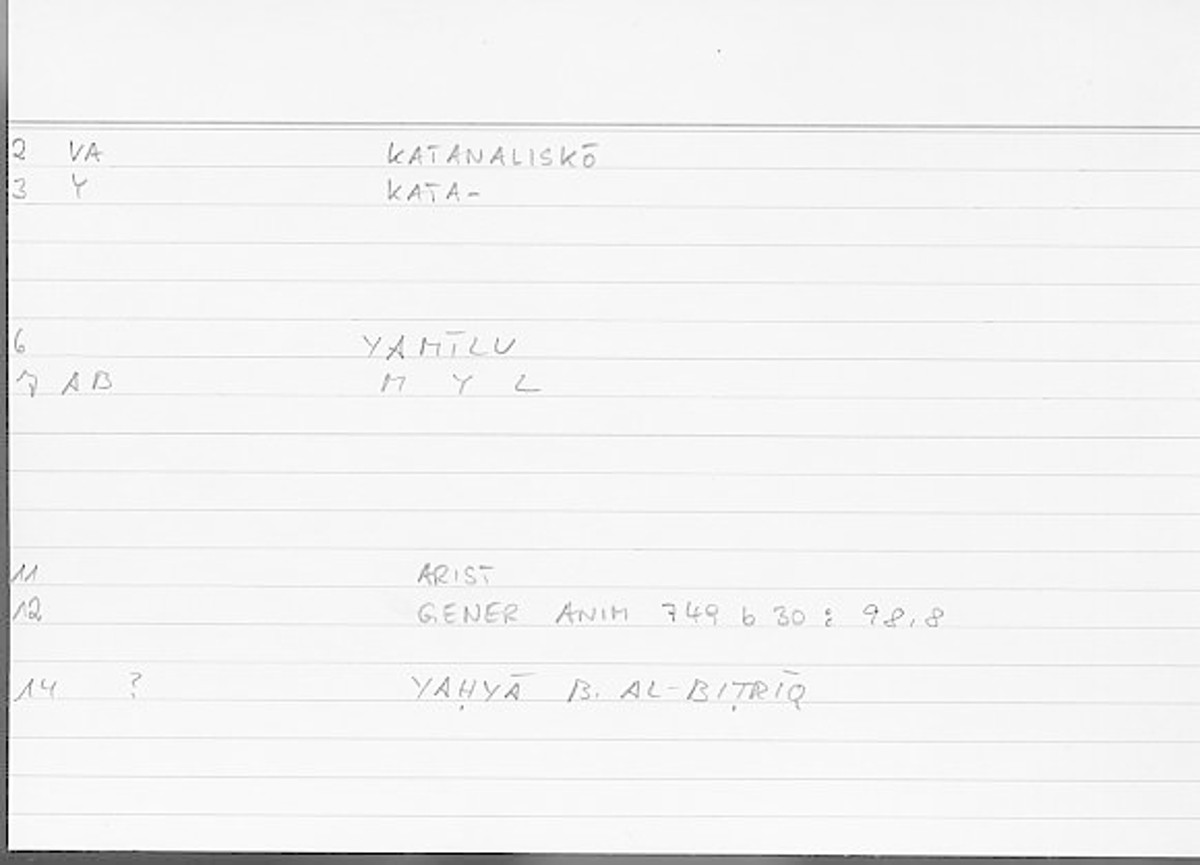 2 VA KATANALISKŌ
3 Y KATA-
6 YAMĪLU
7 AB M Y L
11 ARIST
12 GENER ANIM 749 b 30 : 98,8
14 ? YAḤYĀ B. AL-BIṬRĪQ